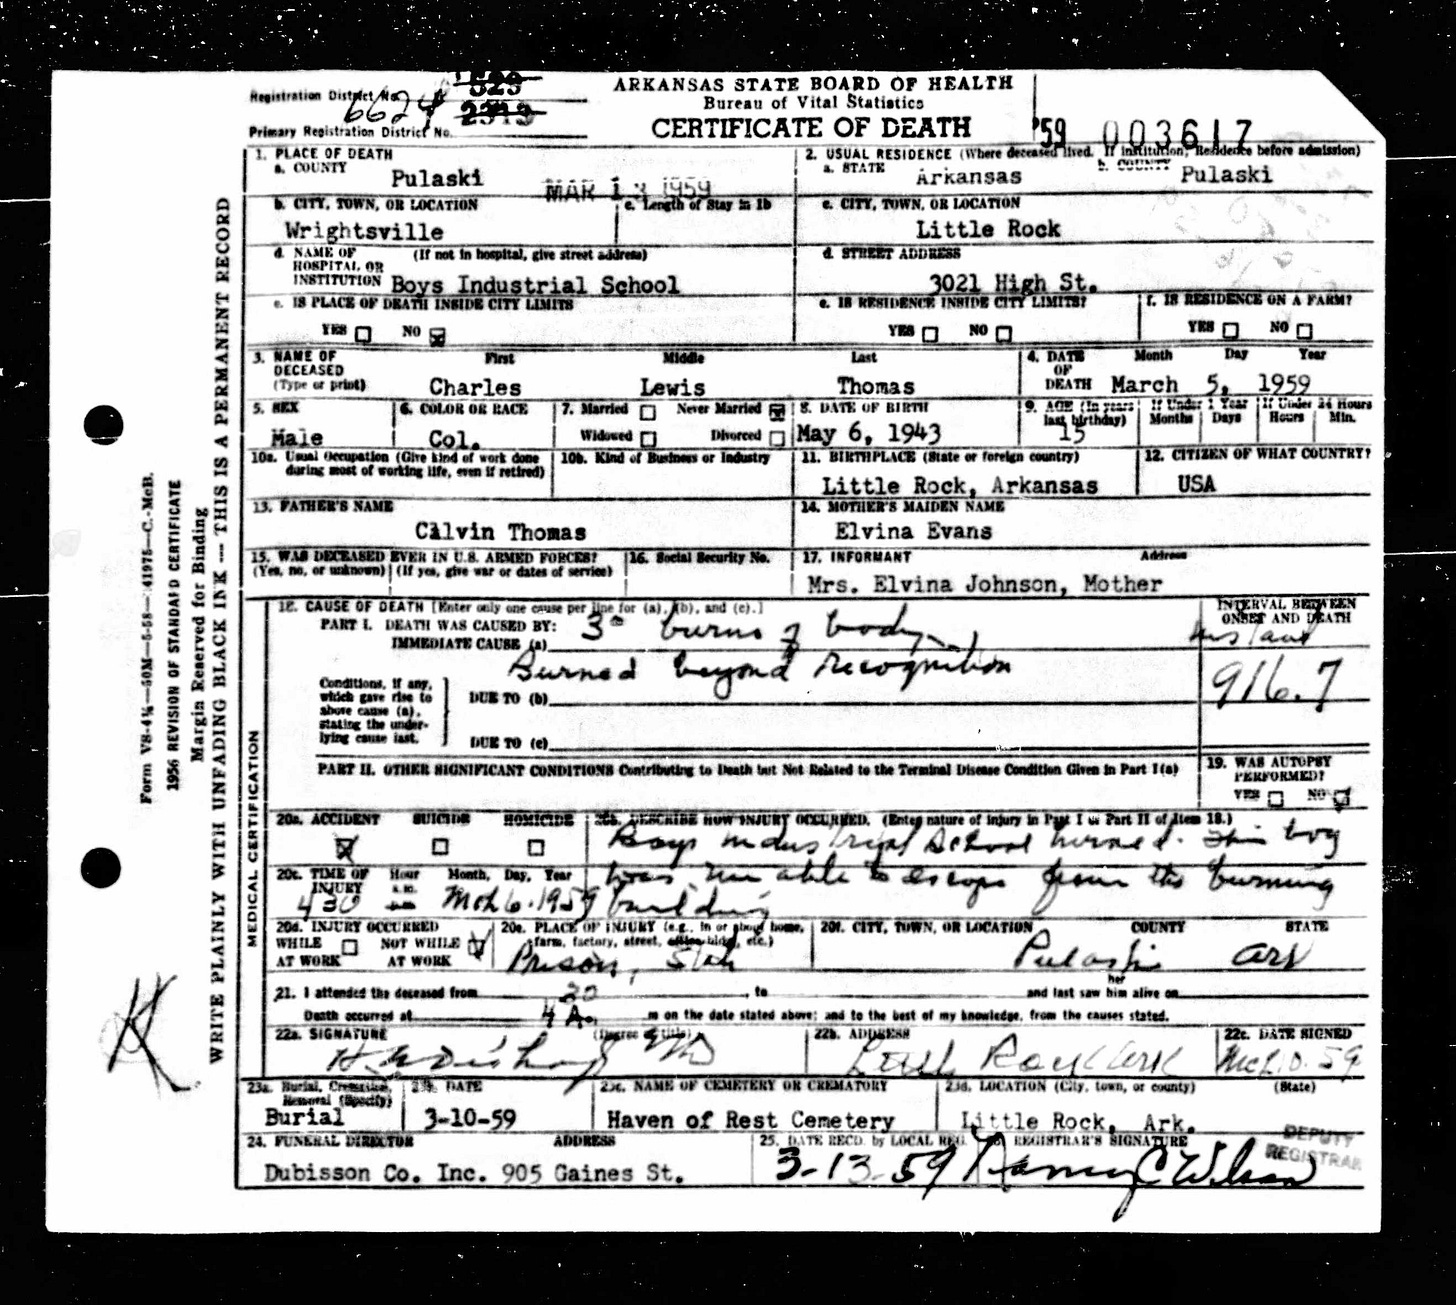 Registration District No. 6624 523
2313
Primary Registration District No.
ARKANSAS STATE BOARD OF HEALTH
Bureau of Vital Statistics
CERTIFICATE OF DEATH
'59 003617
1. PLACE OF DEATH
a. COUNTY Pulaski
MAR 13 1959
2. USUAL RESIDENCE (Where deceased lived. If institution; Residence before admission)
a. STATE Arkansas b. COUNTY Pulaski
b. CITY, TOWN, OR LOCATION Wrightsville
c. Length of Stay in 1b
c. CITY, TOWN, OR LOCATION
Little Rock
d. NAME OF HOSPITAL OR INSTITUTION (If not in hospital, give street address)
Boys Industrial School
d. STREET ADDRESS
3021 High St.
e. IS PLACE OF DEATH INSIDE CITY LIMITS
YES NO
e. IS RESIDENCE INSIDE CITY LIMITS?
YES NO
f. IS RESIDENCE ON A FARM?
YES NO
3. NAME OF DECEASED (Type or print)
First Middle Last
Charles Lewis Thomas
4. DATE OF DEATH Month Day Year
March 5, 1959
5. SEX
Male
6. COLOR OR RACE
Col.
7. Married Never Married
Widowed Divorced
8. DATE OF BIRTH
May 6, 1943
9. AGE (In years last birthday)
15
If Under 1 Year
Months Days
If Under 24 Hours
Hours Min.
10a. Usual Occupation (Give kind of work done during most of working life, even if retired)
10b. Kind of Business or Industry
11. BIRTHPLACE (State or foreign country)
Little Rock, Arkansas
12. CITIZEN OF WHAT COUNTRY?
USA
13. FATHER'S NAME
Calvin Thomas
14. MOTHER'S MAIDEN NAME
Elvina Evans
15. WAS DECEASED EVER IN U.S. ARMED FORCES?
(Yes, no, or unknown) (If yes, give war or dates of service)
16. Social Security No.
17. INFORMANT Address
Mrs. Elvina Johnson, Mother
18. CAUSE OF DEATH [Enter only one cause per line for (a), (b), and (c).]
PART I. DEATH WAS CAUSED BY:
IMMEDIATE CAUSE (a) 3° burns of body,
Burned beyond recognition
INTERVAL BETWEEN ONSET AND DEATH
Instant
916.7
Conditions, if any, which gave rise to above cause (a), stating the underlying cause last.
DUE TO (b)
DUE TO (c)
PART II. OTHER SIGNIFICANT CONDITIONS Contributing to Death but Not Related to the Terminal Disease Condition Given in Part I(a)
19. WAS AUTOPSY PERFORMED?
YES NO
20a. ACCIDENT SUICIDE HOMICIDE
20b. DESCRIBE HOW INJURY OCCURRED. (Enter nature of injury in Part I or Part II of Item 18.)
Boys Industrial School burned. This boy
was unable to escape from the burning
building
20c. TIME OF INJURY Hour Month, Day, Year
a.m.
430 Mch 6. 1959
20d. INJURY OCCURRED
WHILE AT WORK NOT WHILE AT WORK
20e. PLACE OF INJURY (e.g., in or about home, farm, factory, street, office bldg., etc.)
Prison, State
20f. CITY, TOWN, OR LOCATION COUNTY STATE
Pulaski Ark
21. I attended the deceased from , to and last saw her him alive on
Death occurred at 4 A. m on the date stated above; and to the best of my knowledge, from the causes stated.
22a. SIGNATURE (Degree or title)
MD
22b. ADDRESS
Little Rock Ark
22c. DATE SIGNED
23a. Burial, Cremation, Removal (Specify)
Burial
23b. DATE
3-10-59
23c. NAME OF CEMETERY OR CREMATORY
Haven of Rest Cemetery
23d. LOCATION (City, town, or county) (State)
Little Rock, Ark.
24. FUNERAL DIRECTOR ADDRESS
Dubisson Co. Inc. 905 Gaines St.
25. DATE RECD. by LOCAL REG.
3-13-59
REGISTRAR'S SIGNATURE
Nancy C Wilson
DEPUTY REGISTRAR
MEDICAL CERTIFICATION
WRITE PLAINLY WITH UNFADING BLACK INK — THIS IS A PERMANENT RECORD
Margin Reserved for Binding
1956 REVISION OF STANDARD CERTIFICATE
K